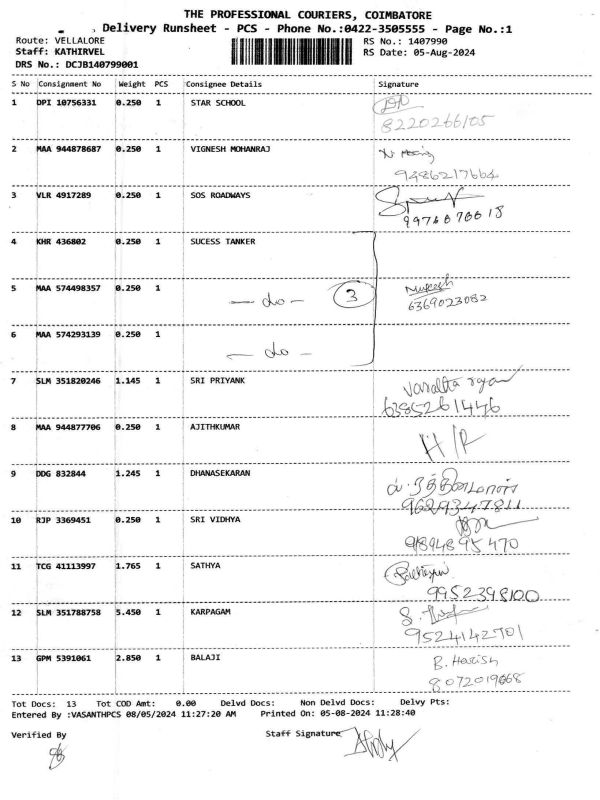 THE PROFESSIONAL COURIERS, COIMBATORE
Delivery Runsheet - PCS - Phone No.:0422-3505555 - Page No.:1
Route: VELLALORE RS No.: 1407990
Staff: KATHIRVEL RS Date: 05-Aug-2024
DRS No.: DCJB140799001
S No Consignment No Weight PCS Consignee Details Signature
1 DPI 10756331 0.250 1 STAR SCHOOL
8220266105
2 MAA 944878687 0.250 1 VIGNESH MOHANRAJ
9486217664
3 VLR 4917289 0.250 1 SOS ROADWAYS
9976676618
4 KHR 436802 0.250 1 SUCESS TANKER
5 MAA 574498357 0.250 1 Mukesh
— do — 3 6369023082
6 MAA 574293139 0.250 1
— do —
7 SLM 351820246 1.145 1 SRI PRIYANK
6385261446
8 MAA 944877706 0.250 1 AJITHKUMAR
H/R
9 DDG 832844 1.245 1 DHANASEKARAN
9629347811
10 RJP 3369451 0.250 1 SRI VIDHYA
9894895470
11 TCG 41113997 1.765 1 SATHYA
9952398100
12 SLM 351788758 5.450 1 KARPAGAM
9524142701
13 GPM 5391061 2.850 1 BALAJI B. Harish
8072019668
Tot Docs: 13 Tot COD Amt: 0.00 Delvd Docs: Non Delvd Docs: Delvy Pts:
Entered By :VASANTHPCS 08/05/2024 11:27:20 AM Printed On: 05-08-2024 11:28:40
Verified By Staff Signature